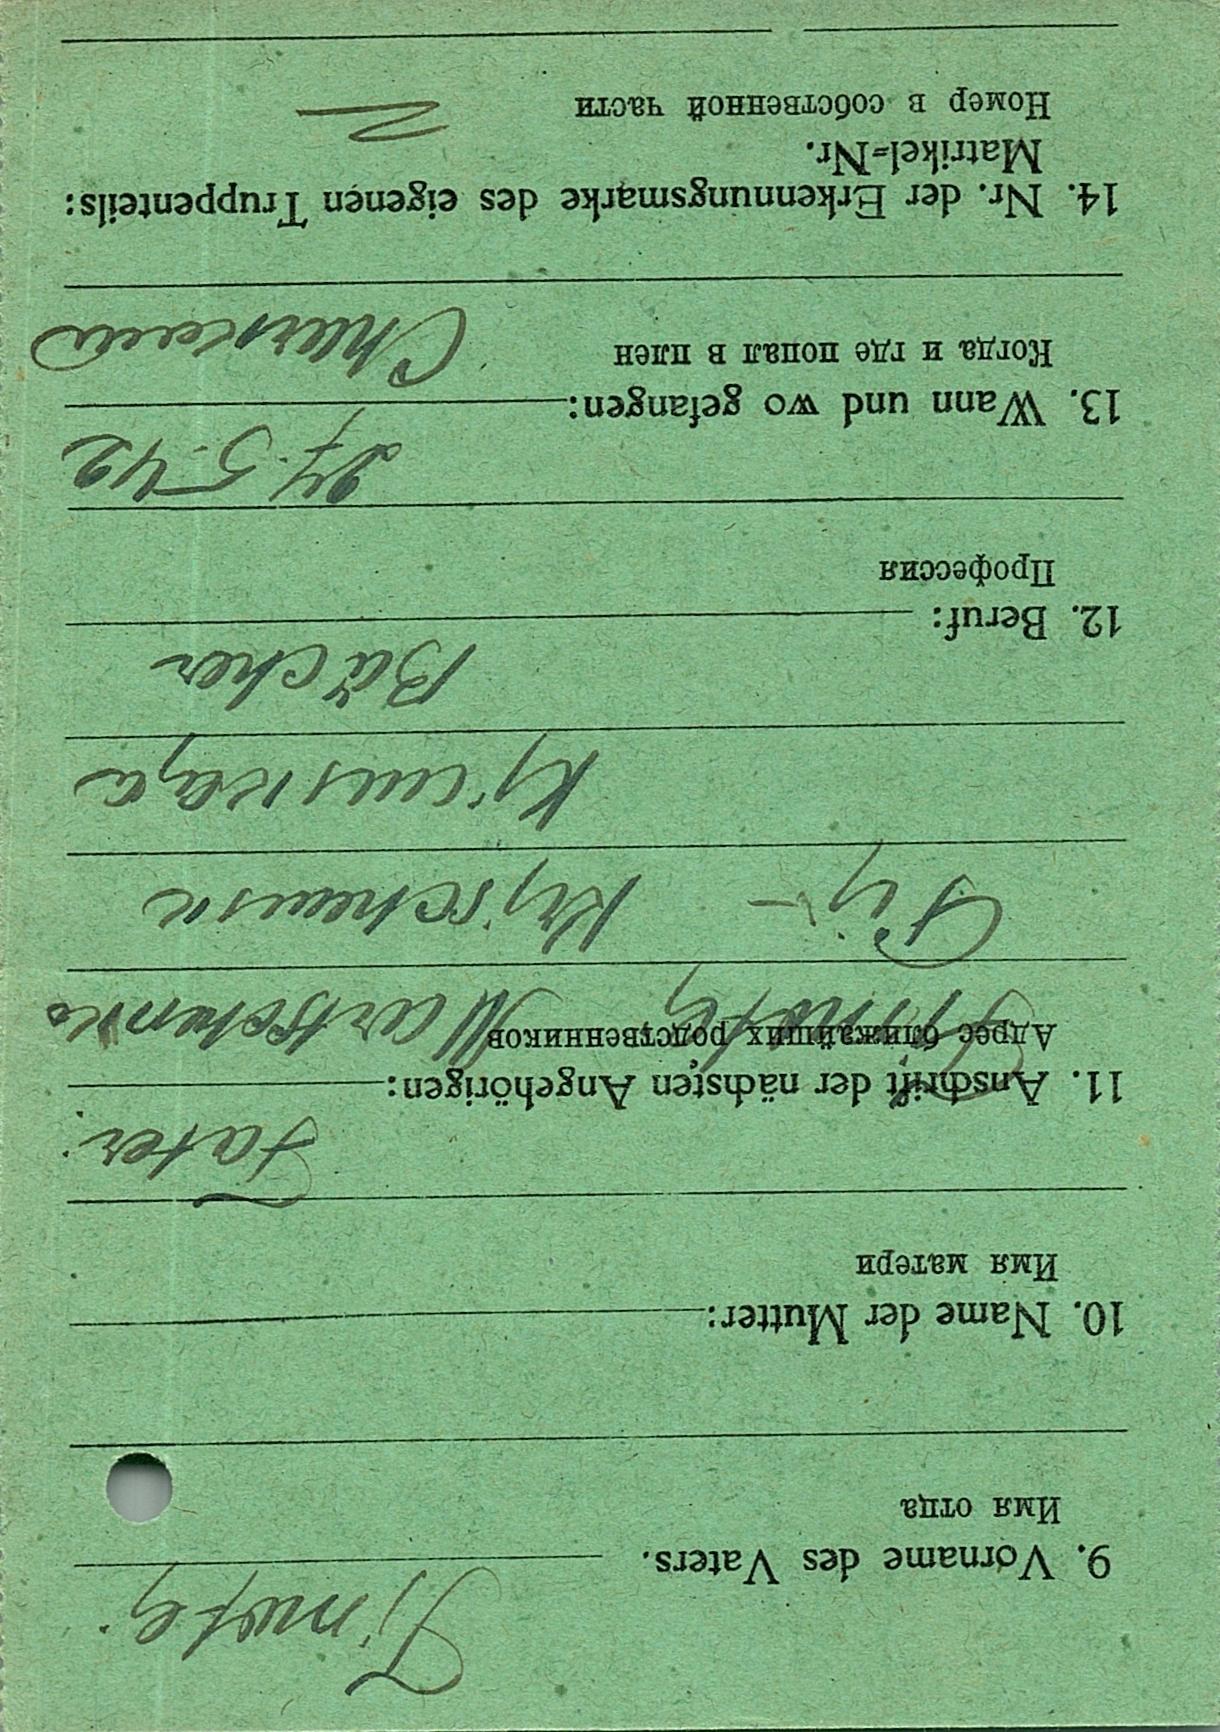 Timofej
9. Vorname des Vaters.
Имя отца
10. Name der Mutter:
Имя матери
Fater.
11. Anschrift der nächsten Angehörigen:
Адрес ближайших родственников
Timofej
Krjschansk
Bächer
12. Beruf:
Профессия
27.5.42
13. Wann und wo gefangen:
Когда и где попал в плен
Charkow
14. Nr. der Erkennungsmarke des eigenen Truppenteils:
Matrikel-Nr.
Номер в собственной части